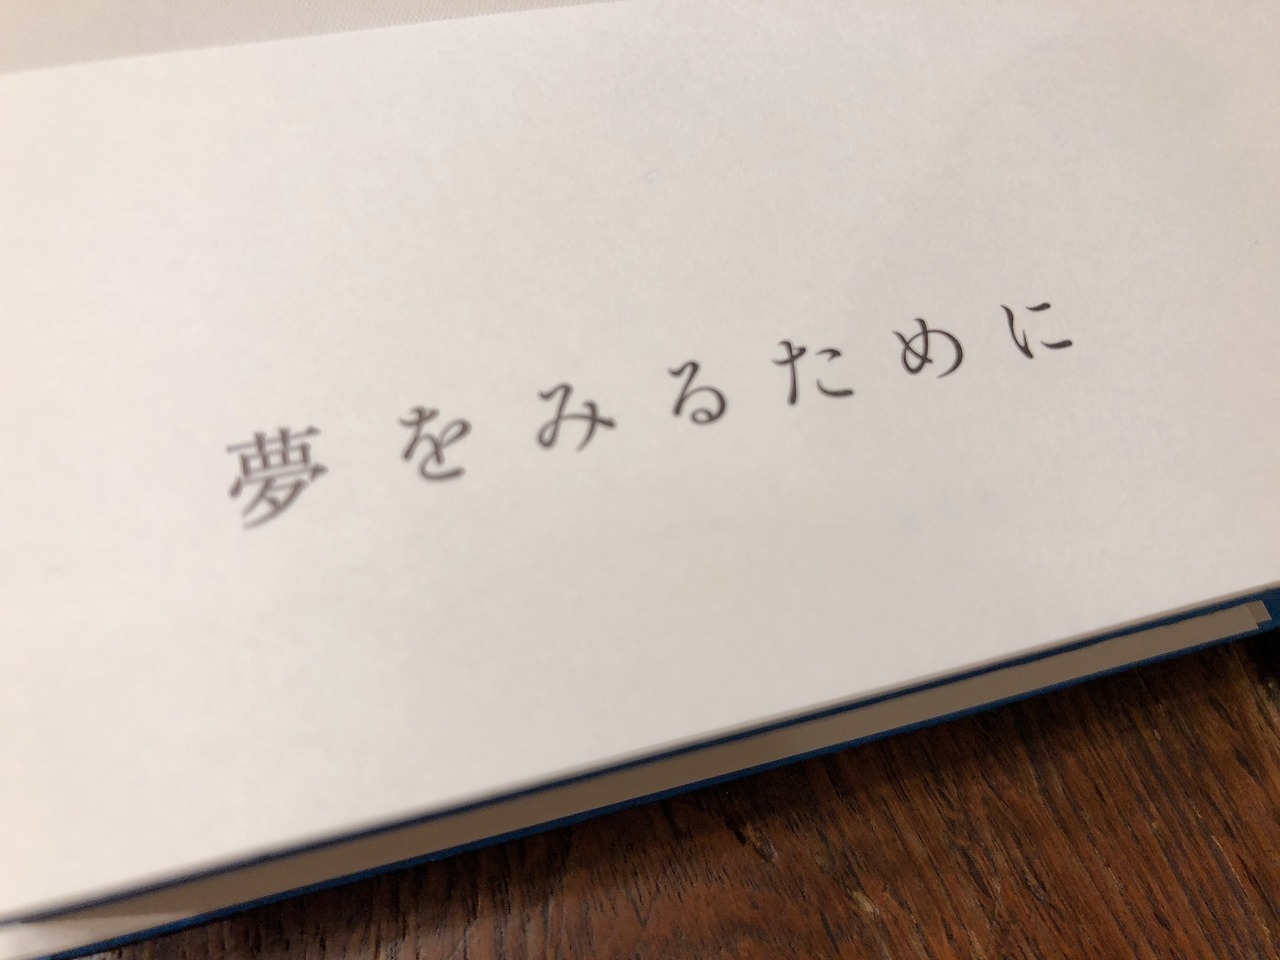 夢をみるために